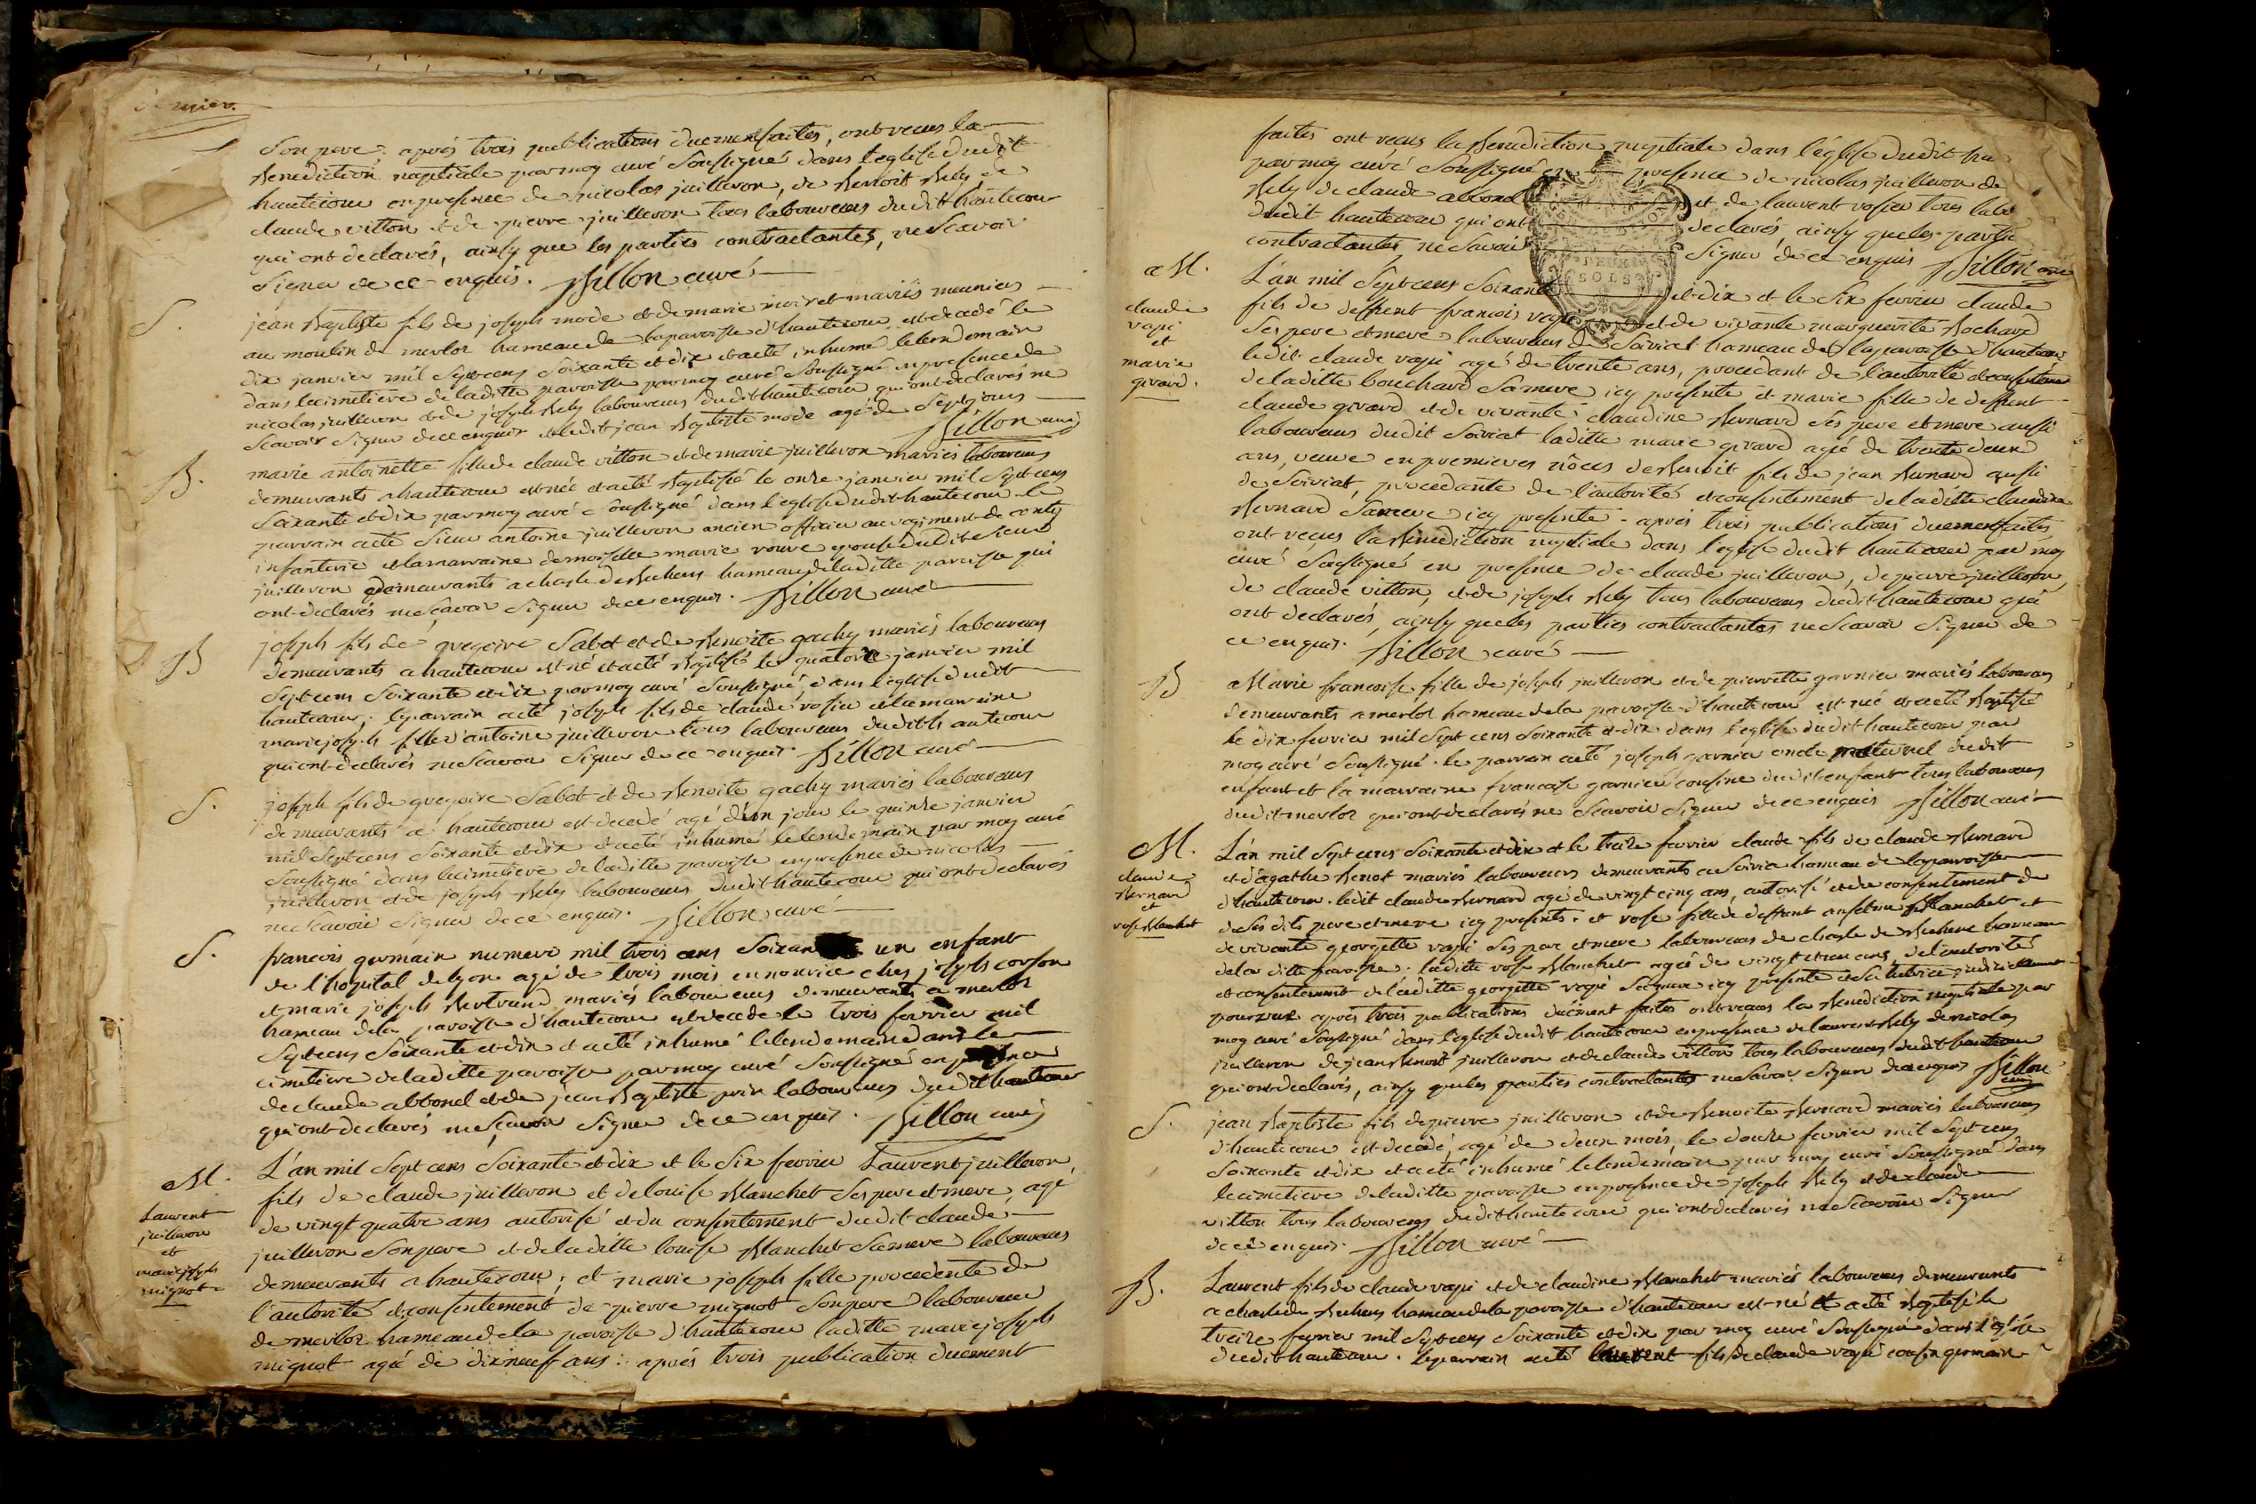 dernier.
son pere, après trois publications duement faites, ont recus la
Benediction nuptiale par moy curé soussigné dans l'eglise dudit
hautecour en presence de nicolas juilleron, de Benoit Rely de
claude vitton et de pierre juilleron tous laboureurs dudit hautecour
qui ont declarés, ainsy que les parties contractantes, ne scavoir
signer de ce enquis. Billon curé
S.
jean Baptiste fils de joseph mode et de marie mariés meuniers
au moulin de merloz hameau de la paroisse d'hautecour est decedé le
dix janvier mil sept cens soixante et dix et a eté inhumé le lendemain
dans le cimetiere de laditte paroisse par moy curé soussigné en presence de
nicolas juilleron et de joseph Rely laboureurs dudit hautecour qui ont declarés ne
scavoir signer de ce enquis et ledit jean Baptiste mode agé de sept jours
Billon curé
B.
marie antoinette fille de claude vitton et de marie juilleron mariés laboureurs
demeurants a hautecour est née et a eté Baptisé le onze janvier mil sept cens
soixante et dix par moy curé soussigné dans l'eglise dudit hautecour le
parrain a eté sieur antoine juilleron ancien officier au regiment de conty
infanterie et la marraine demoiselle marie epouse dudit sieur
juilleron demeurants a chasle de Buhens hameau de laditte paroisse qui
ont declarés ne scavoir signer de ce enquis. Billon curé
B
joseph fils de gregoire Sabot et de Benoite gachy mariés laboureurs
demeurants a hautecour est né et a eté Baptisé le quatorze janvier mil
sept cens soixante et dix par moy curé soussigné, dans l'eglise dudit
hautecour, le parrain a eté joseph fils de claude rosier et la marraine
marie joseph fille d'antoine juilleron tous laboureurs dudit hautecour
qui ont declarés ne scavoir signer de ce enquis. Billon curé
S.
joseph fils de gregoire Sabot et de Benoite gachy mariés laboureurs
demeurants a hautecour est decedé agé d'un jour le quinze janvier
mil sept cens soixante et dix et a eté inhumé le lendemain par moy curé
soussigné dans le cimetiere de laditte paroisse en presence de nicolas
juilleron et de joseph Rely laboureurs dudit hautecour qui ont declarés
ne scavoir signer de ce enquis. Billon curé
S.
francois germain numero mil trois cens soixan un enfant
de l'hopital de lyon agé de trois mois en nourice ches joseph corson
et marie joseph Bertrand mariés laboureurs demeurants a merloz
hameau de la paroisse d'hautecour est decedé le trois fevrier mil
sept cens soixante et dix et a eté inhumé le lendemain dans le
cimetiere de laditte paroisse par moy curé soussigné en presence
de claude abbonel et de jean Baptiste laboureurs dudit hautecour
qui ont declarés ne scavoir signer de ce enquis. Billon curé
M.
Laurent
juilleron
et
marie joseph
mignot
L'an mil sept cens soixante et dix et le six fevrier Laurent juilleron
fils de claude juilleron et de louise Blanchet ses pere et mere, agé
de vingt quatre ans autorisé et du consentement dudit claude
juilleron son pere et de laditte louise Blanchet sa mere laboureurs
demeurants a hautecour; et marie joseph fille procedente de
l'autorité et consentement de pierre mignot son pere laboureur
de merloz hameau de la paroisse d'hautecour laditte marie joseph
mignot agée de dixneuf ans: après trois publication duement
faites ont recus la Benediction nuptiale dans l'église dudit hau
par moy curé soussigné en presence de nicolas juilleron de
Rely de claude abbonel et de laurent rosier tous labo
dudit hautecour qui ont declarés ainsy que les partie
contractantes ne scavoir signer de ce enquis Billon curé
M.
claude
vapi
et
marie
girard.
L'an mil sept cens soixante et dix et le six fevrier claude
fils de deffunt francois vapi et de vivante marguerite Bochard
ses pere et mere laboureurs de Soiriat hameau de la paroisse d'hautecour
ledit claude vapi agé de trente ans, procedant de l'autorité et consentement
de laditte bouchard sa mere icy presente et marie fille de deffunt
claude girard et de vivante claudine Bernard ses pere et mere aussi
laboureurs dudit soiriat laditte marie girard agée de trente deux
ans, veuve en premieres nôces de Benoit fils de jean Bernard aussi
de Soiriat, procedante de l'autorité et consentement de laditte claudine
Bernard sa mere icy presente - après trois publications duement faites
ont reçus la Benediction nuptiale dans l'eglise dudit hautecour par moy
curé soussigné en presence de claude juilleron, de pierre juilleron
de claude vitton, et de joseph Rely tous laboureurs dudit hautecour qui
ont declarés, ainsy que les parties contractantes ne scavoir signer de
ce enquis. Billon curé
B
Marie francoise fille de joseph juilleron et de pierrette garnier mariés laboureurs
demeurants a merloz hameau de la paroisse d'hautecour est née et a eté Baptisé
le dix fevrier mil sept cens soixante et dix dans l'eglise dudit hautecour par
moy curé soussigné. le parrain a eté joseph garnier oncle maternel dudit
enfant et la marraine francoise garnier cousine dudit enfant tous laboureurs
dudit merloz qui ont declarés ne scavoir signer de ce enquis Billon curé
M.
claude
Bernard
et
rose Blanchet
L'an mil sept cens soixante et dix et le treize fevrier claude fils de claude Bernard
et d'agathe Benot mariés laboureurs demeurants au soiria hameau de la paroisse
d'hautecour. ledit claude Bernard agé de vingt cinq ans, autorisé et du consentement de
de ses dits pere et mere icy presents; et rose fille de deffunt anselme Blanchet et
de vivante georgette vapi ses pere et mere laboureurs de chasle de Buhens hameau
de la ditte paroisse. laditte rose Blanchet agée de vingt et un ans, de l'autorité
et consentement de laditte georgette vapi sa mere icy presente et sa tutrice judiciellement
pourvue après trois publications duëment faites ont recus la Benediction nuptiale par
moy curé soussigné dans l'eglise dudit hautecour en presence de laurent Rely de nicolas
juilleron de jean Benoit juilleron et de claude vitton tous laboureurs dudit hautecour
qui ont declarés, ainsy que les parties contractantes ne scavoir signer de ce enquis Billon
curé
S.
jean Baptiste fils de pierre juilleron et de Benoite Bernard mariés laboureurs
d'hautecour est decedé, agé de deux mois, le douze fevrier mil sept cens
soixante et dix et a eté inhumé le lendemain par moy curé soussigné dans
le cimetiere de laditte paroisse en presence de joseph Rely et de claude
vitton tous laboureurs dudit hautecour qui ont declarés ne scavoir signer
de ce enquis. Billon curé
B.
Laurent fils de claude vapi et de claudine Blanchet mariés laboureurs demeurants
a chasle de Buhens hameau de la paroisse d'hautecour est né et a eté Baptisé le
treize fevrier mil sept cens soixante et dix par moy curé soussigné dans l'eglise
dudit hautecour. le parrain a eté laurent fils de claude vapi cousin germain